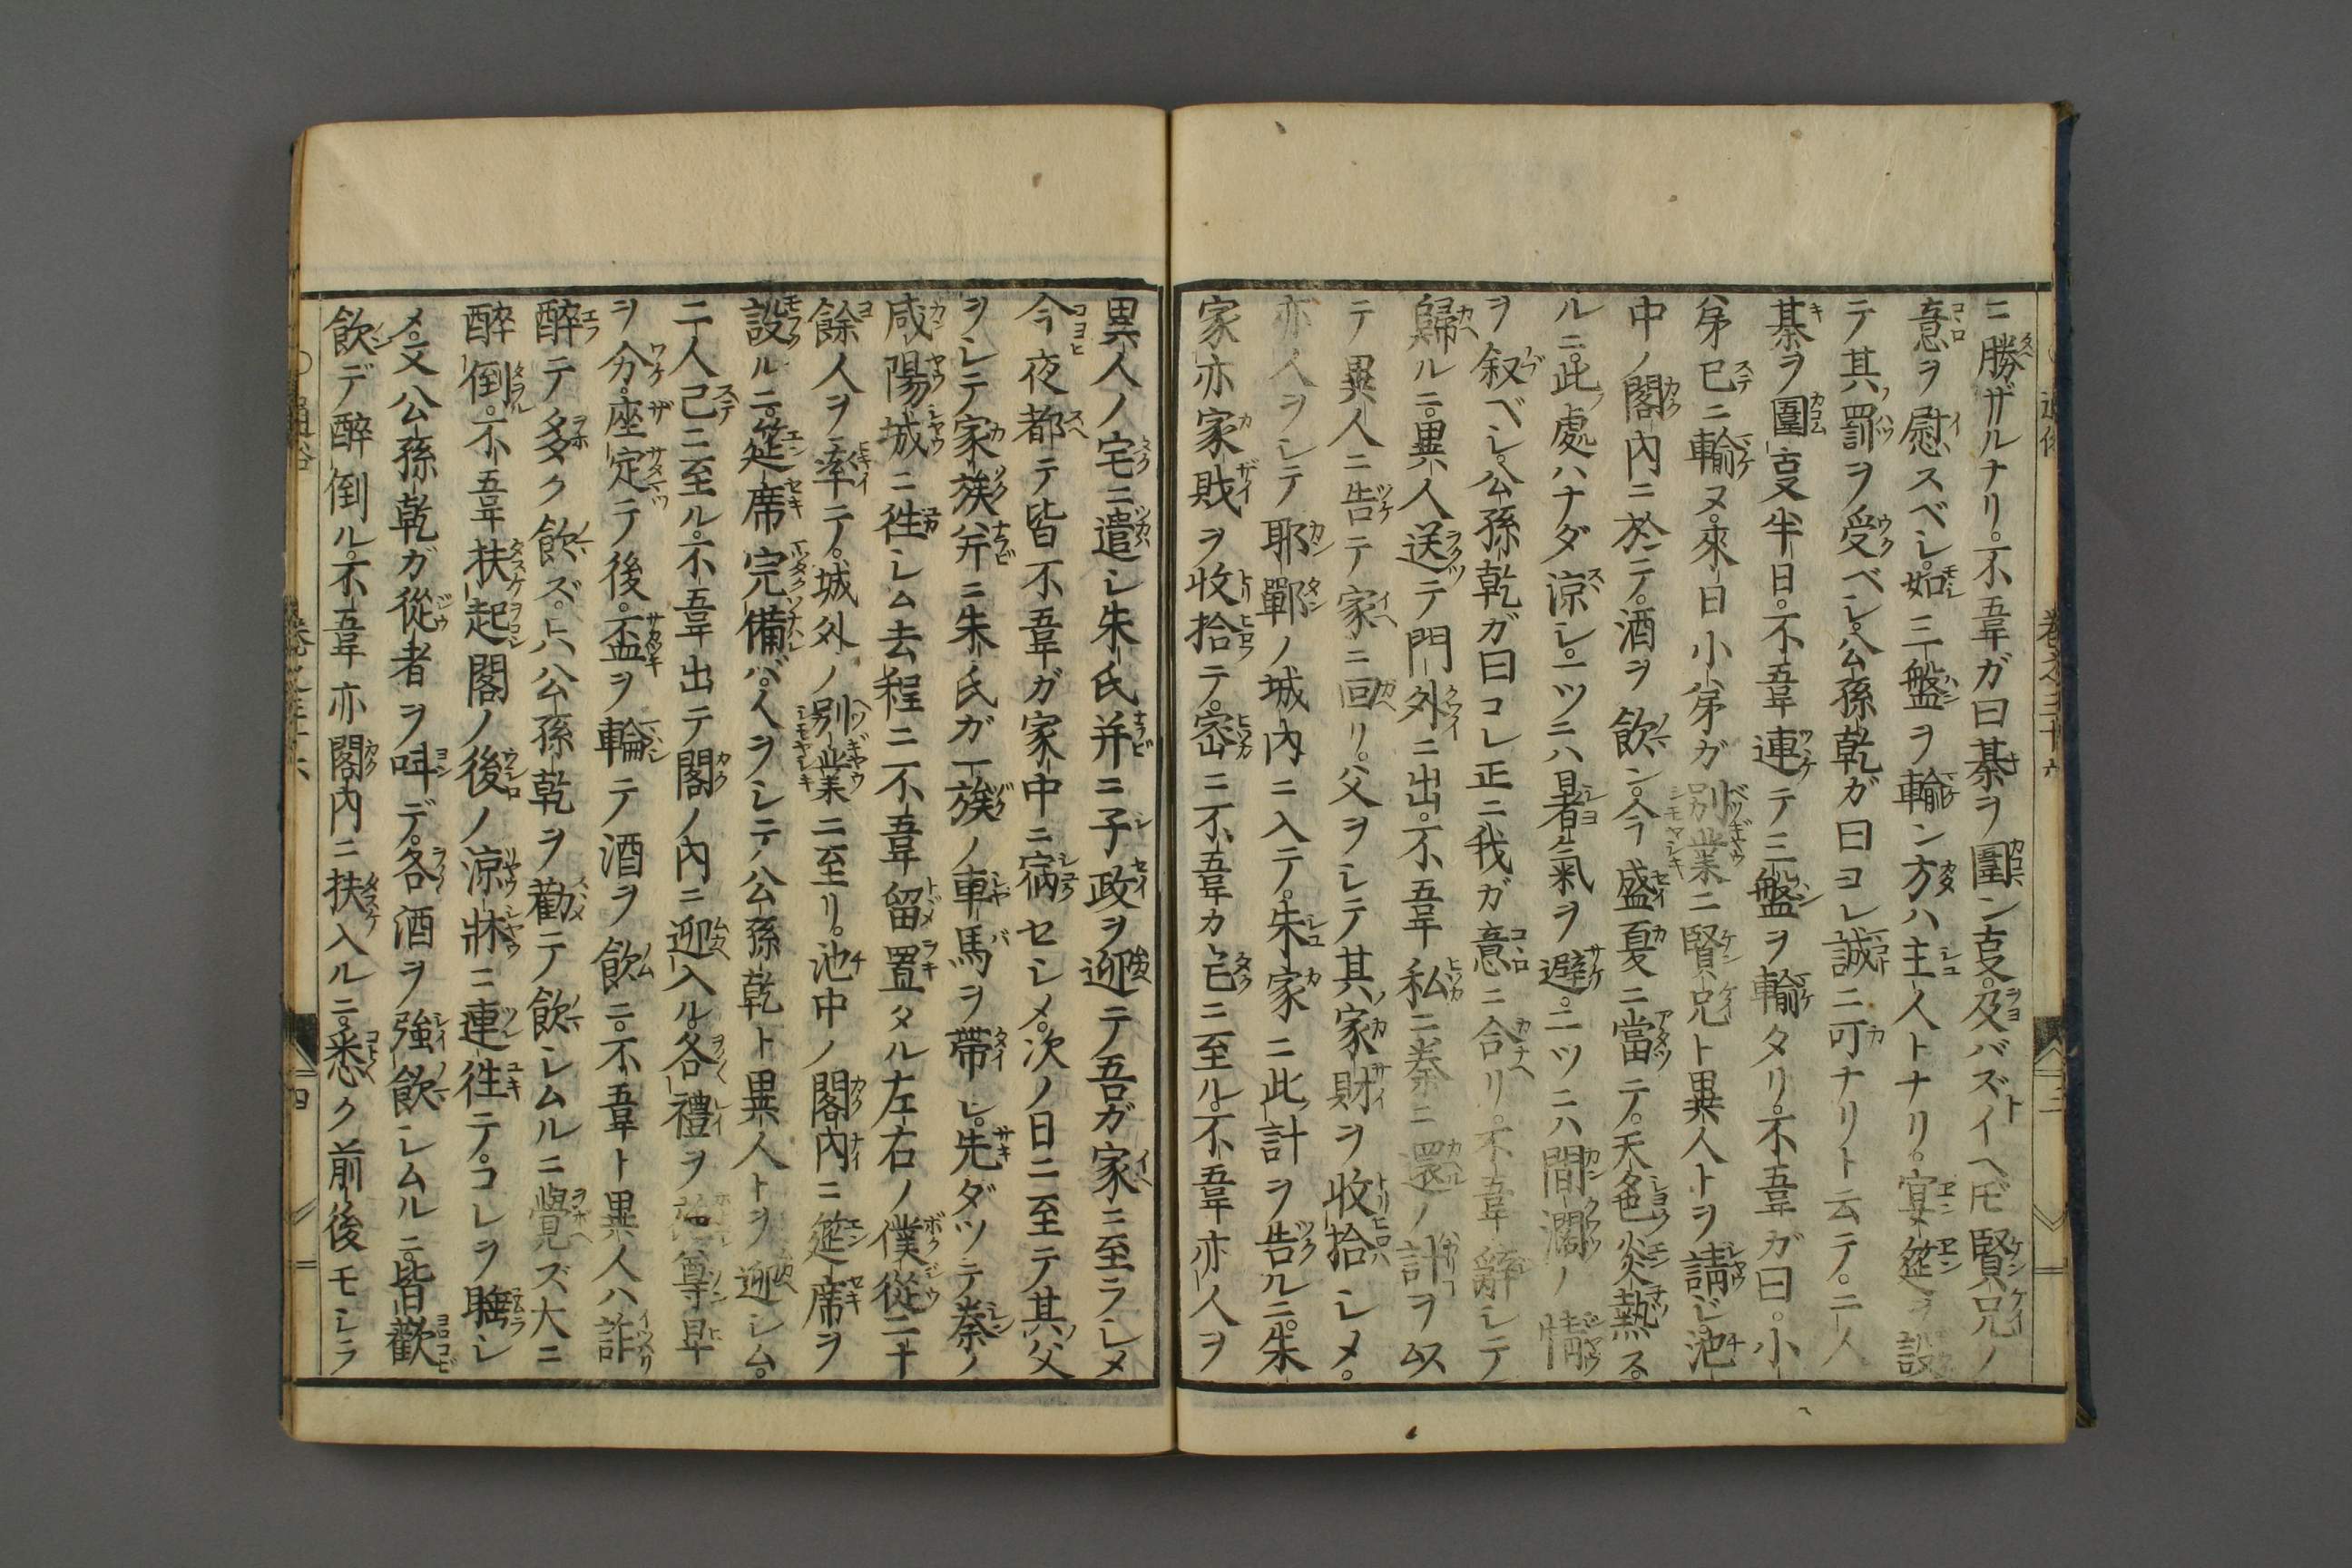 ニ勝ザルナリ。不韋ガ曰棊ヲ圍ン亥。及バズトイヘ𪜈賢兄ノ
意ヲ慰スベシ。如三盤ヲ輸ン方ハ主人トナリ。宴筵ヲ設
テ其罰ヲ受ベシ。公孫乾ガ曰コレ誠ニ可ナリト云テ。二人
棊ヲ圍亥半日。不韋連テ三盤ヲ輸タリ。不韋ガ曰。小
弟已ニ輸ヌ。來日小弟ガ別業ニ賢兄ト異人トヲ請ジ。池
中ノ閣内ニ於テ。酒ヲ飲ン。今盛夏ニ當テ。天色炎熱ス。
ルニ。此處ハナダ涼シ。一ツニハ暑氣ヲ避。二ツニハ間濶ノ情
ヲ叙ベシ。公孫乾ガ曰コレ正ニ我ガ意ニ合リ。不韋辭シテ
歸ルニ。異人送テ門外ニ出。不韋私ニ秦ニ還ノ計ヲ以
テ異人ニ告テ家ニ回リ。父ヲシテ其家財ヲ收拾シメ。
亦人ヲシテ耶鄲ノ城内ニ入テ。朱家ニ此計ヲ告ルニ。朱
家亦家財ヲ收拾テ。密ニ不韋カ宅ニ至ル。不韋亦人ヲ
異人ノ宅ニ遣シ朱氏并ニ子政ヲ迎テ吾ガ家ニ至ラシメ
今夜都テ皆不韋ガ家中ニ宿セシメ。次ノ日ニ至テ其父
ヲシテ家族并ニ朱氏ガ一族ノ車馬ヲ帶シ。先ダツテ秦ノ
咸陽城ニ徃シム去程ニ不韋留置タル左右ノ僕從二十
餘人ヲ率テ。城外ノ別業ニ至リ。池中ノ閣内ニ筵席ヲ
設ルニ。筵席完備バ。人ヲシテ公孫乾ト異人トヲ迎シム。
二人已ニ至ル。不韋出テ閣ノ内ニ迎入ル。各禮ヲ 尊卑
ヲ分。座定テ後。盃ヲ輪テ酒ヲ飲ニ。不韋ト異人ハ詐
醉テ多ク飲ズ。只公孫乾ヲ勸テ飲シムルニ覺ズ大ニ
醉倒。不韋扶起閣ノ後ノ涼牀ニ連徃テ。コレヲ睡シ
メ。又公孫乾ガ從者ヲ呼デ。各酒ヲ強飲シムルニ。皆歡
飲デ醉倒ル。不韋亦閣内ニ扶入ルニ。悉ク前後モシラ